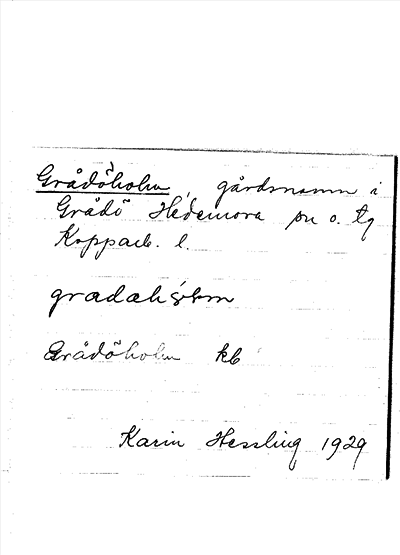 Grådöholm, gårdsnamn i
Grådö Hedemora sn o. tg
Kopparb. l.
Grådöholm kb
Karin Hessling 1929